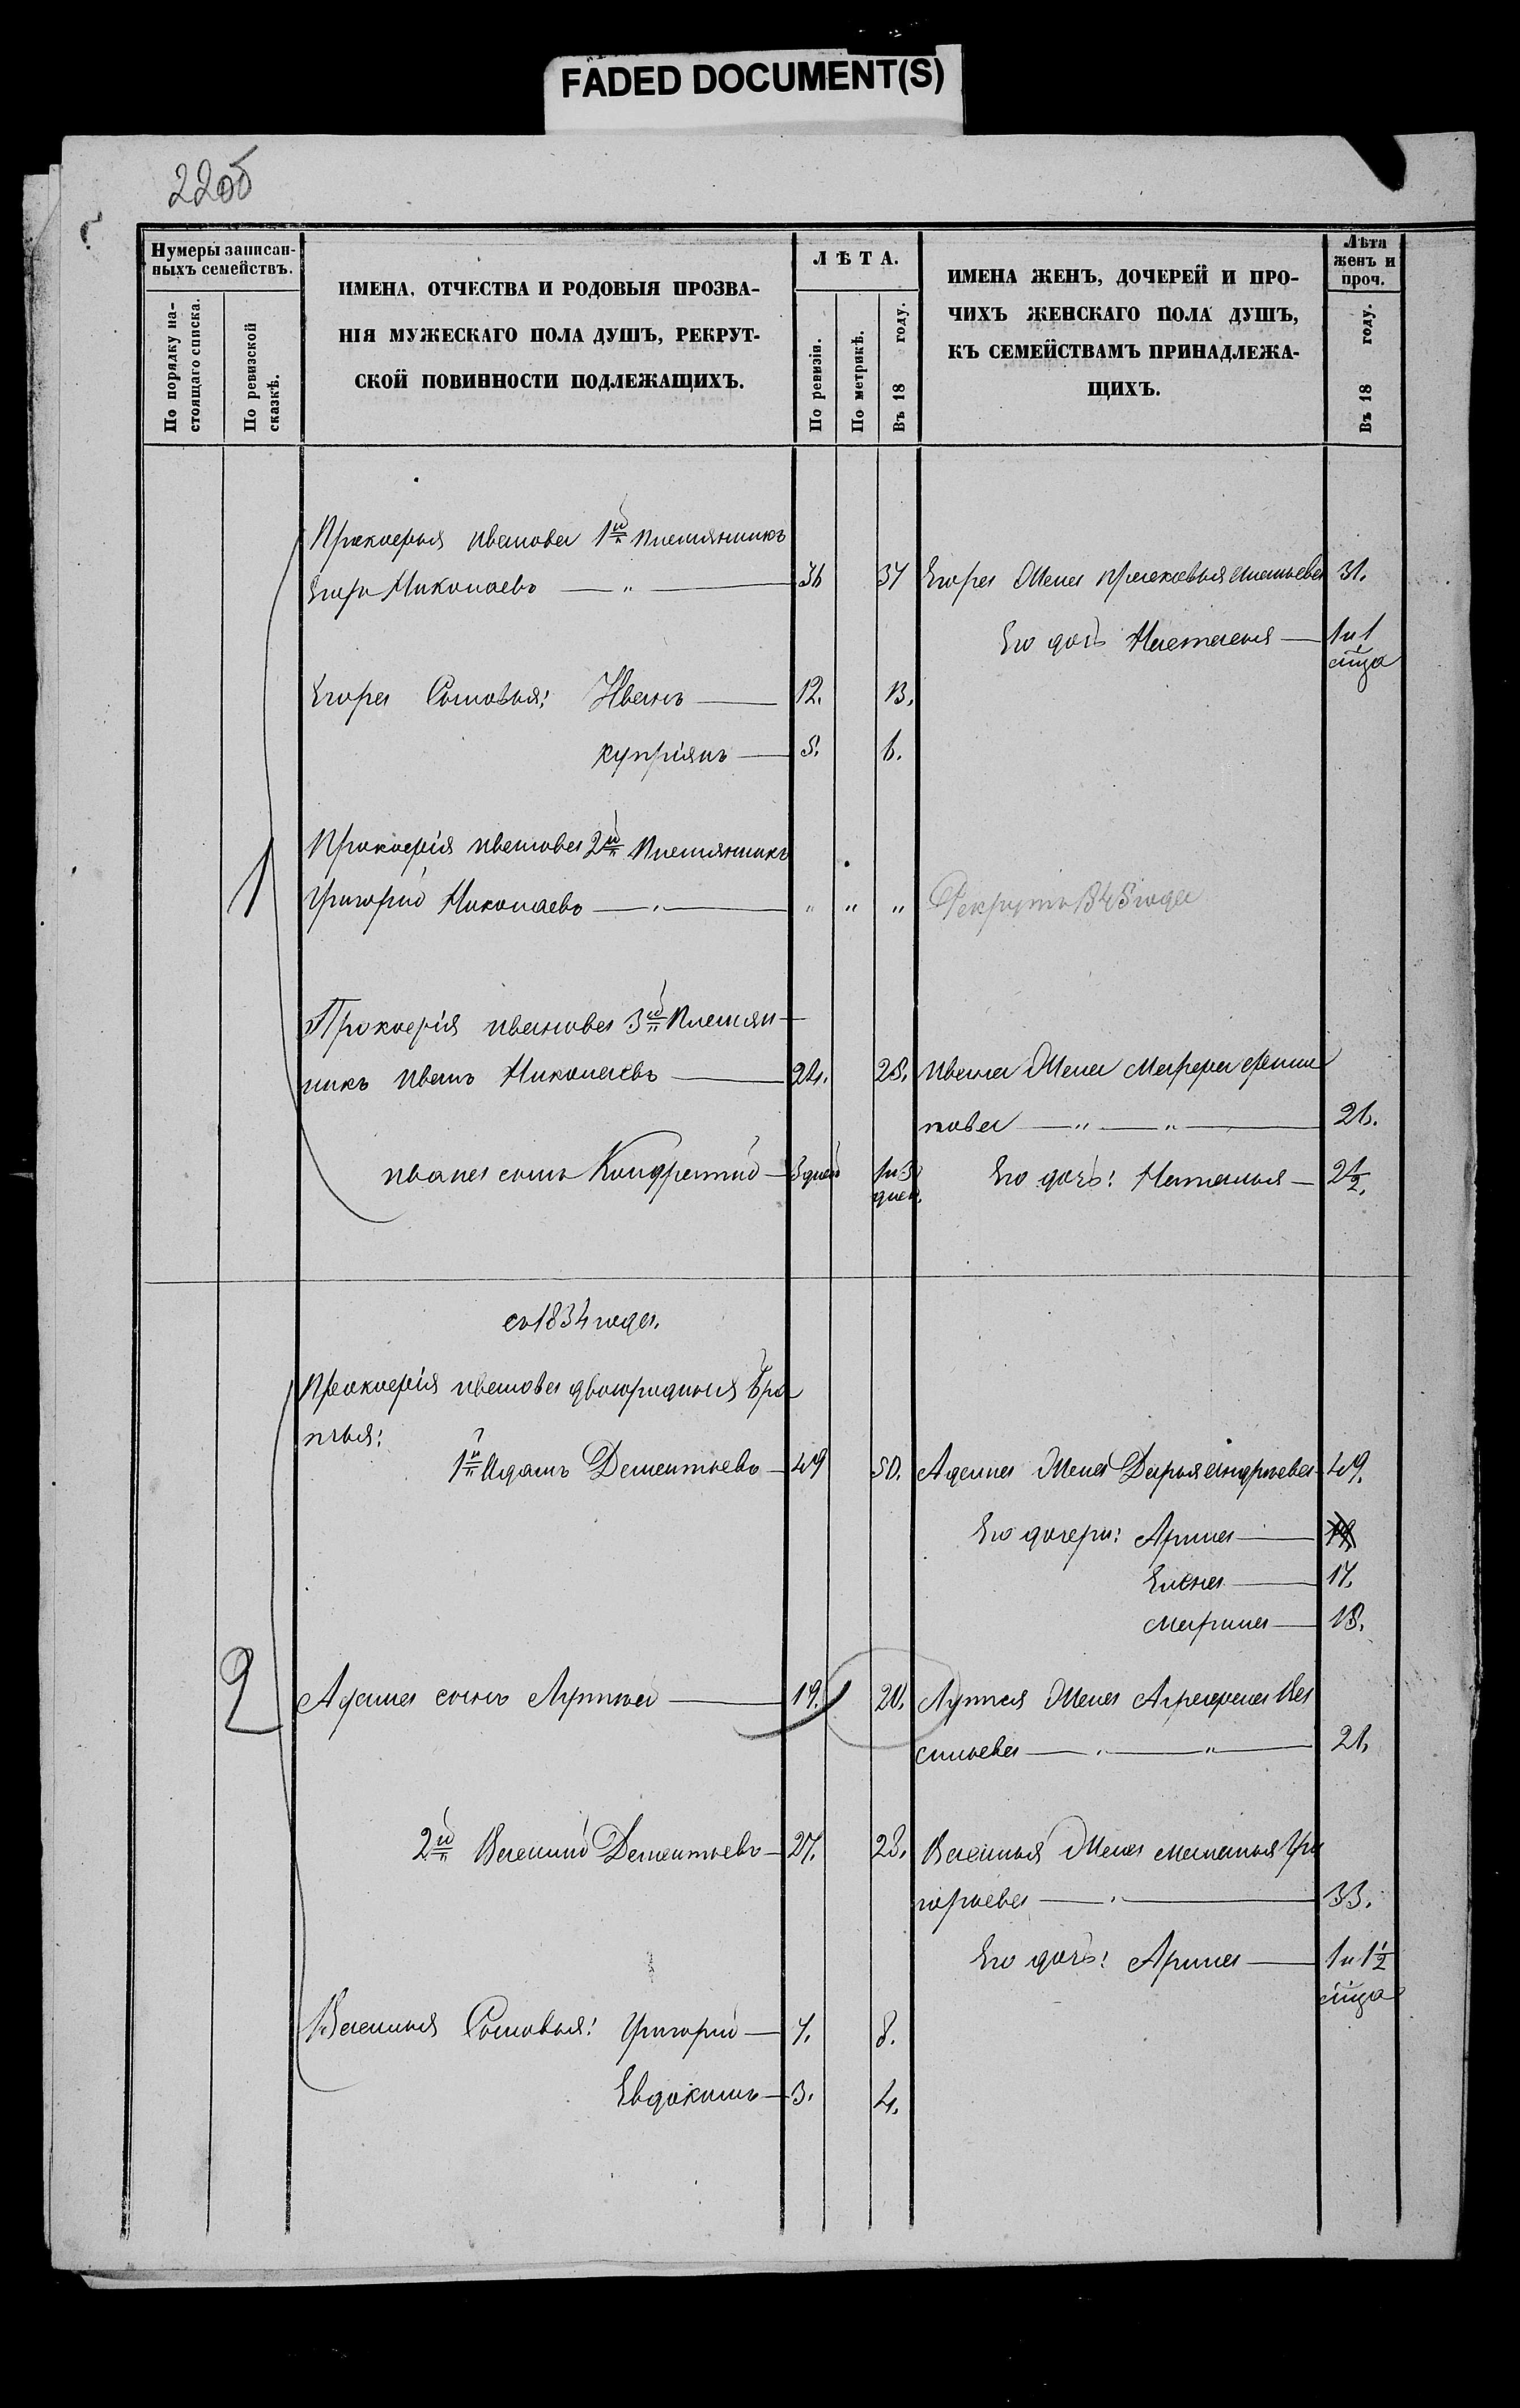 FADED DOCUMENT(S)
220б
Нумеры записан-
ныхъ семействъ.
По порядку на-
стоящаго списка.
По ревизской
сказкѣ.
ИМЕНА, ОТЧЕСТВА И РОДОВЫЯ ПРОЗВА-
НІЯ МУЖЕСКАГО ПОЛА ДУШЪ, РЕКРУТ-
СКОЙ ПОВИННОСТИ ПОДЛЕЖАЩИХЪ.
ЛѢТА.
По ревизіи.
По метрикѣ.
Въ 18 году.
ИМЕНА ЖЕНЪ, ДОЧЕРЕЙ И ПРО-
ЧИХЪ ЖЕНСКАГО ПОЛА ДУШЪ,
КЪ СЕМЕЙСТВАМЪ ПРИНАДЛЕЖА-
ЩИХЪ.
Лѣта
женъ и
проч.
Въ 18 году.
Прокофья иванова 1й племянникъ
Егоръ Николаевъ — „ — 36 37 Егора Жена 31.
Его дочь Настасья — 1 и 1
мца
Егора Сыновья: Иванъ — 12. 13.
купріянъ — 5. 6.
1
Прокофія иванова 2й племянникъ
Григорій Николаевъ — „ — „ „ „ Рекрутъ 1843 года
Прокофія иванова 3й племян-
никъ иванъ Николаевъ — 24. 25. ивана Жена Марфа
това — „ — „ — 26.
ивана сынъ Кондратій — 3 дней 1 и 3 дней. Его дочь: Наталья — 2 1/2.
съ 1834 года.
2
Прокофія иванова двоюродныя бра
тья:
1й Адамъ Дементьевъ — 49 50. Адама Жена Дарья андреева — 49.
Его дочери: Арина —
Елена — 17.
марина — 15.
Адама сынъ Лупъ — 19. 20. Жена Аграфена Ва
сильева — „ — „ — 21.
2й Василій Дементьевъ — 27. 28. Василья Жена маланья Гри
горьева — „ — 33.
Его дочь: Арина — 1 и 1 1/2
мца
Василья Сыновья: Григорій — 7. 8.
Евдокимъ — 3. 4.